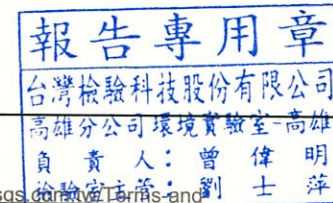 報告專用章
台灣檢驗科技股份有限公司
高雄分公司環境實驗室-高雄
負責人:曾偉明
檢驗室主管:劉士萍
sgs.com.tw/Terms-and